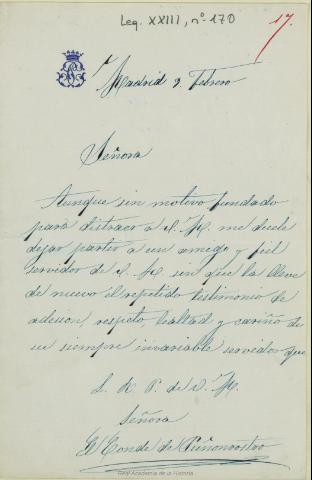 Leg. XXIII, nº 170
17.
Madrid 9. Febrero
Señora
Aunque sin motivo fundado
para distraer a V. M. me duele
dejar partir a un amigo y fiel
servidor de V. M. sin que la lleve
de nuevo el repetido testimonio de
adesion, respeto, lealtad y cariño de
su siempre invariable servidor que
B. L. R. P. de V. M.
Señora
El Conde de Puñonrostro
Real Academia de la Historia